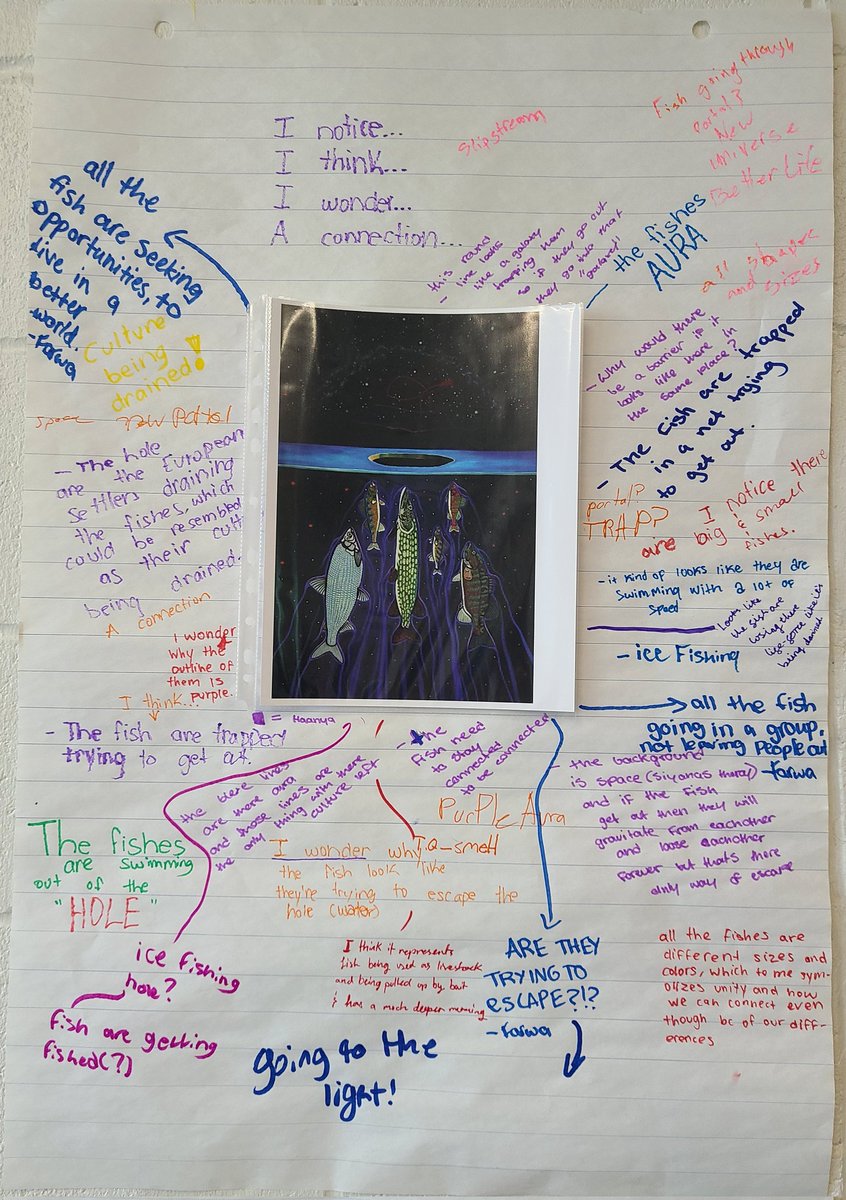 I notice...
I think...
I wonder...
A connection...
Slipstream
Fish going through
Portal?
New
Universe
Better Life
all the
fish are seeking
opportunities, to
live in a
better
world.
-Farwa
Culture
being
drained!
line looks
like a galaxy
trapping them
so if they go out
they go into that
- the fishes
AURA
all shape
and sizes
- Why would there
be a barrier if it
looks like there in
the same place?
- The fish are trapped
in a net trying
to get out.
new Portal
- The hole
are the European
settlers draining
the fishes, which
could be resembled
as their cult
being drained.
A connection
portal?
TRAP?
I notice there
are big & small
fishes.
- it kind of looks like they are
swimming with a lot of
speed
looks like
the fish are
losing there
life-force like it's
being drained
- ice Fishing
I wonder
why the
outline of
them is
purple.
I think...
- The fish are trapped
trying to get out.
= Haanya
- the
fish need
to stay
connected
to be connected
all the fish
going in a group,
not leaving people out
-Farwa
- the background
is space
and if the fish
get out then they will
gravitate from eachother
and loose eachother
forever but thats there
only way of escape
the blere lines
are there aura
and those lines are
the only thing with there
culture left
Purple Aura
The fishes
are swimming
out of the
"HOLE"
I wonder why
the fish look like
they're trying to escape the
hole (water)
ice fishing
hole?
fish are getting
fished(?)
I think it represents
fish being used as livestock
and being pulled up by, but
it has a much deeper meaning
ARE THEY
TRYING TO
ESCAPE?!?
-Farwa
all the fishes are
different sizes and
colors, which to me sym-
olizes unity and how
we can connect even
though bc of our diff-
erences
going to the
light!